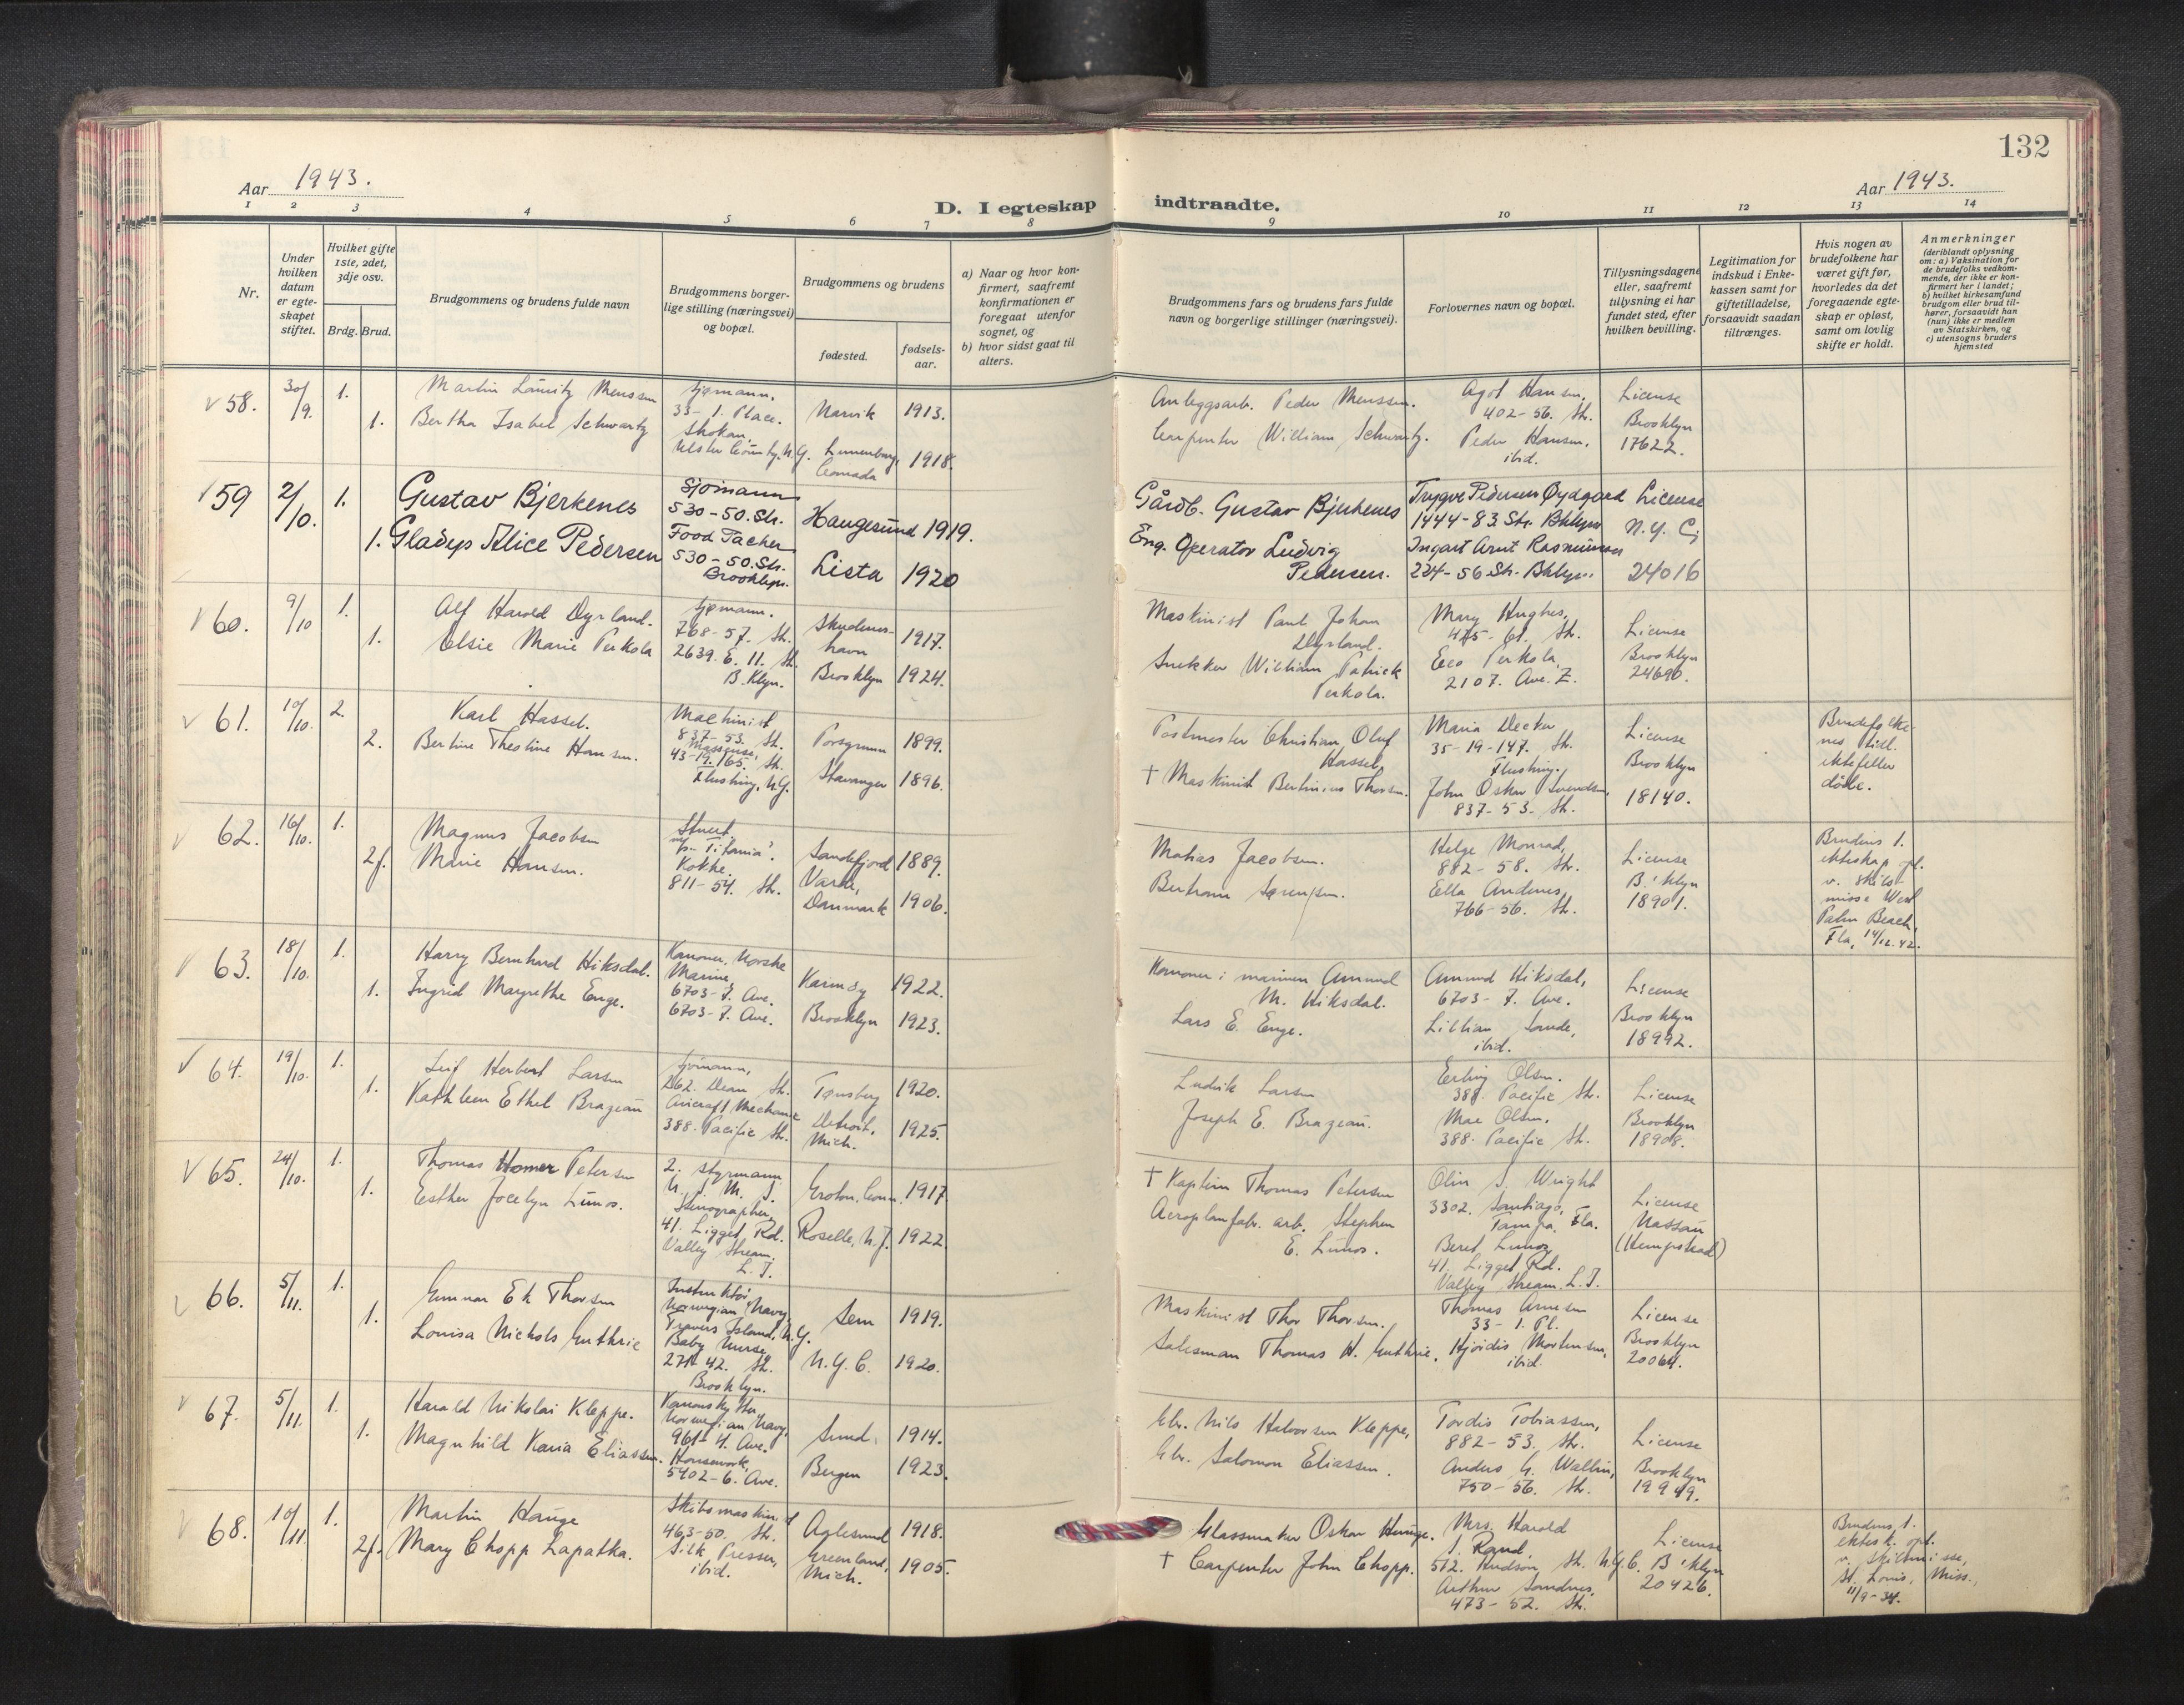 132
Aar 1943.
Aar 1943.
D. I egteskap indtraadte.
1 2 3 4 5 6 7 8 9 10 11 12 13 14
Nr.
Under hvilken datum er egteskapet stiftet.
Hvilket gifte 1ste, 2det, 3dje osv.
Brdg. Brud.
Brudgommens og brudens fulde navn
Brudgommens borgerlige stilling (næringsvei) og bopæl.
Brudgommens og brudens
fødested.
fødselsaar.
a) Naar og hvor konfirmert, saafremt konfirmationen er foregaat utenfor sognet, og
b) hvor sidst gaat til alters.
Brudgommens fars og brudens fars fulde navn og borgerlige stillinger (næringsvei).
Forlovernes navn og bopæl.
Tillysningsdagene eller, saafremt tillysning ei har fundet sted, efter hvilken bevilling.
Legitimation for indskud i Enkekassen samt for giftetilladelse, forsaavidt saadan tiltrænges.
Hvis nogen av brudefolkene har været gift før, hvorledes da det foregaaende egteskap er opløst, samt om lovlig skifte er holdt.
Anmerkninger (deriblandt oplysning om: a) Vaksination for de brudefolks vedkommende, der ikke er konfirmert her i landet; b) hvilket kirkesamfund brudgom eller brud tilhører, forsaavidt han (hun) ikke er medlem av Statskirken, og c) utensogns bruders hjemsted
58. 30/9. 1. Martin Lauritz Menssen Sjømann, 33- 1. Place. Narvik 1913.
1. Bertha Isabel Schwartz Shokan, Ulster County, N.Y. Lunenburg, Canada 1918.
Anleggsarb. Peder Menssen.
Carpenter William Schwartz.
Agot Hansen, 402-56. Str.
Peder Hansen, ibid.
License Brooklyn 17622.
59 2/10. 1. Gustav Bjerkenes Sjömann 530-50. Str. Haugesund 1919.
1. Gladys Alice Pedersen Food Packer 530-50. Str. Brooklyn. Lista 1920
Gårdb. Gustav Bjerkenes
Eng. Operator Ludvig Pedersen.
Trygve Pedersen Øydgard 1444-83. Str. Bklyn
Ingart Arnt Rasmussen 224-56 Str. Bklyn.
License N.Y. C; 24016
60. 9/10 1. Alf Harold Dyrland. Sjømann. 768-57. Str. Skudeneshavn 1917.
1. Elsie Marie Perkola 2639. E. 11. Str. B.Klyn. Brooklyn 1924.
Maskinist Paul Johan Dyrland.
Snekker William Patrick Perkola.
Mary Hughes, 475- 61. Str.
Eeo Perkola, 2107. Ave. Z.
License Brooklyn 24690.
61. 10/10. 2. Karl Hassel. Machinist 837-53. Str. Porsgrunn 1899.
2. Bertine Theoline Hansen. Masseuse, 43-19. 165. Str. Flushing, N.Y. Stavanger 1896.
Postmester Christian Oluf Hassel
† Maskinist Bertinius Thorsen.
Maria Decker 35-19-147. Str. Flushing.
John Oskar Svendsen, 837-53. Str.
License Brooklyn 18140.
Brudefolkenes tidl. ektefeller döde.
62. 16/10. 1. Magnus Jacobsen Stuert. m/s "Titania". Sandefjord 1889.
2f. Marie Hansen. Kokke. 811-54. Str. Varde, Danmark 1906.
Matias Jacobsen.
Bertram Sørensen.
Helge Monrad, 882-58. Str.
Ella Andenes, 766-56. Str.
License B.'klyn 18901.
Brudens 1. ekteskap opl. v. skilsmisse West Palm Beach, Fla, 14/12. 42.
63. 18/10. 1. Harry Bernhard Hiksdal. Kanoner. Norske Marine, 6703-7. Ave. Karmøy 1922.
1. Ingrid Margrethe Enge. 6703-7. Ave. Brooklyn 1923.
Kanoner i marinen Amund M. Hiksdal.
Lars E. Enge.
Amund Hiksdal, 6703- 7. Ave.
Lillian Sande, ibid.
License Brooklyn 18992.
64. 19/10. 1. Leif Herbert Larsen Sjömann, 262. Dean Str. Tønsberg 1920.
1. Kathleen Ethel Brazeau Aircraft Mechanic 388. Pacific Str. Detroit, Mich. 1925.
Ludvik Larsen
Joseph E. Brazeau.
Erling Olsen. 388. Pacific Str.
Mae Olsen. 388. Pacific Str.
License Brooklyn 18908.
65. 24/10. 1. Thomas Homer Petersen 2. styrmann U. S. M. S. Groton, Conn. 1917
1. Esther Jocelyn Lunos. Stenographer, 41. Ligget Rd. Valley Stream. L. I. Roselle, N.J. 1922
† Kaptein Thomas Petersen
Aeroplanfabr. arb. Stephen E. Lunos.
Olin S. Wright 3302. Santiago, Tampa, Fla.
Beret Lunos 41. Ligget Rd. Valley Stream. L. I.
License Nassau (Hempstead)
66. 5/11. 1. Gunnar Ek Thorsen Instruktör Norwegian Navy, Travers Island, N.Y. Sem 1919.
1. Louisa Nichols Guthrie Baby Nurse, 271-42. St. Brooklyn. N.Y.C. 1920.
Maskinist Thor Thorsen.
Salesman Thomas W. Guthrie.
Thomas Arnesen 33- 1. Pl.
Hjördis Mortensen, ibid.
License Brooklyn 20064.
67. 5/11. 1. Harald Nikolai Kleppe. Kanonskytter Norwegian Navy, 961-4. Ave. Sund. 1914.
1. Magnhild Karia Eliassen. Housework, 5402-6. Ave. Bergen 1923.
Gbr. Nils Halvorsen Kleppe,
Gbr. Salomon Eliassen.
Tordis Tobiassen, 882-53. Str.
Anders G. Wallin, 750-56. Str.
License Brooklyn 19949.
68. 10/11. 1. Martin Hauge Skibsmaskinist 463-50. Str. Aalesund 1918.
2f. Mary Chopp Lapatka. Silk Presser, ibid. Greenland, Mich. 1905.
Glassmaker Oskar Hauge.
† Carpenter John Chopp.
Mrs. Harold J. Rand, 512. Hudson Str. N.Y.C.
Arthur Sandnes, 473-52. Str.
License B'klyn 20426.
Brudens 1. ektesk. opl. v. skilsmisse, St. Louis, Miss., 11/9-34.